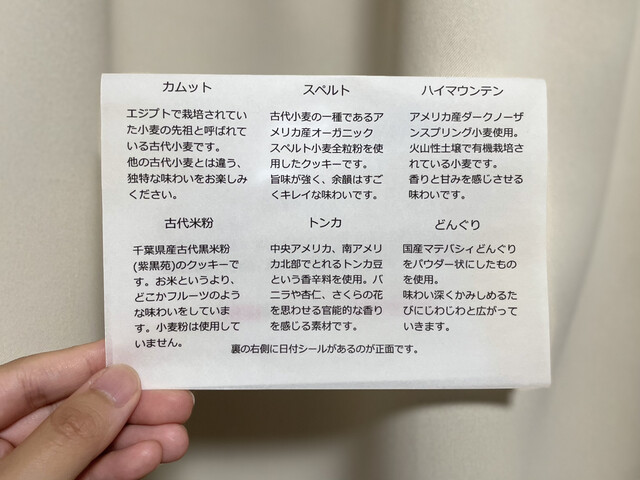 カムット
エジプトで栽培されてい
た小麦の先祖と呼ばれて
いる古代小麦です。
他の古代小麦とは違う、
独特な味わいをお楽しみ
ください。
スペルト
古代小麦の一種であるア
メリカ産オーガニック
スペルト小麦全粒粉を使
用したクッキーです。
旨味が強く、余韻はすご
くキレイな味わいです。
ハイマウンテン
アメリカ産ダークノーザ
ンスプリング小麦使用。
火山性土壌で有機栽培さ
れている小麦です。
香りと甘みを感じさせる
味わいです。
古代米粉
千葉県産古代黒米粉
(紫黒苑)のクッキーで
す。お米というより、
どこかフルーツのよう
な味わいをしていま
す。小麦粉は使用して
いません。
トンカ
中央アメリカ、南アメリ
カ北部でとれるトンカ豆
という香辛料を使用。バ
ニラや杏仁、さくらの花
を思わせる官能的な香り
を感じる素材です。
どんぐり
国産マテバシィどんぐり
をパウダー状にしたもの
を使用。
味わい深くかみしめるた
びにじわじわと広がって
いきます。
裏の右側に日付シールがあるのが正面です。